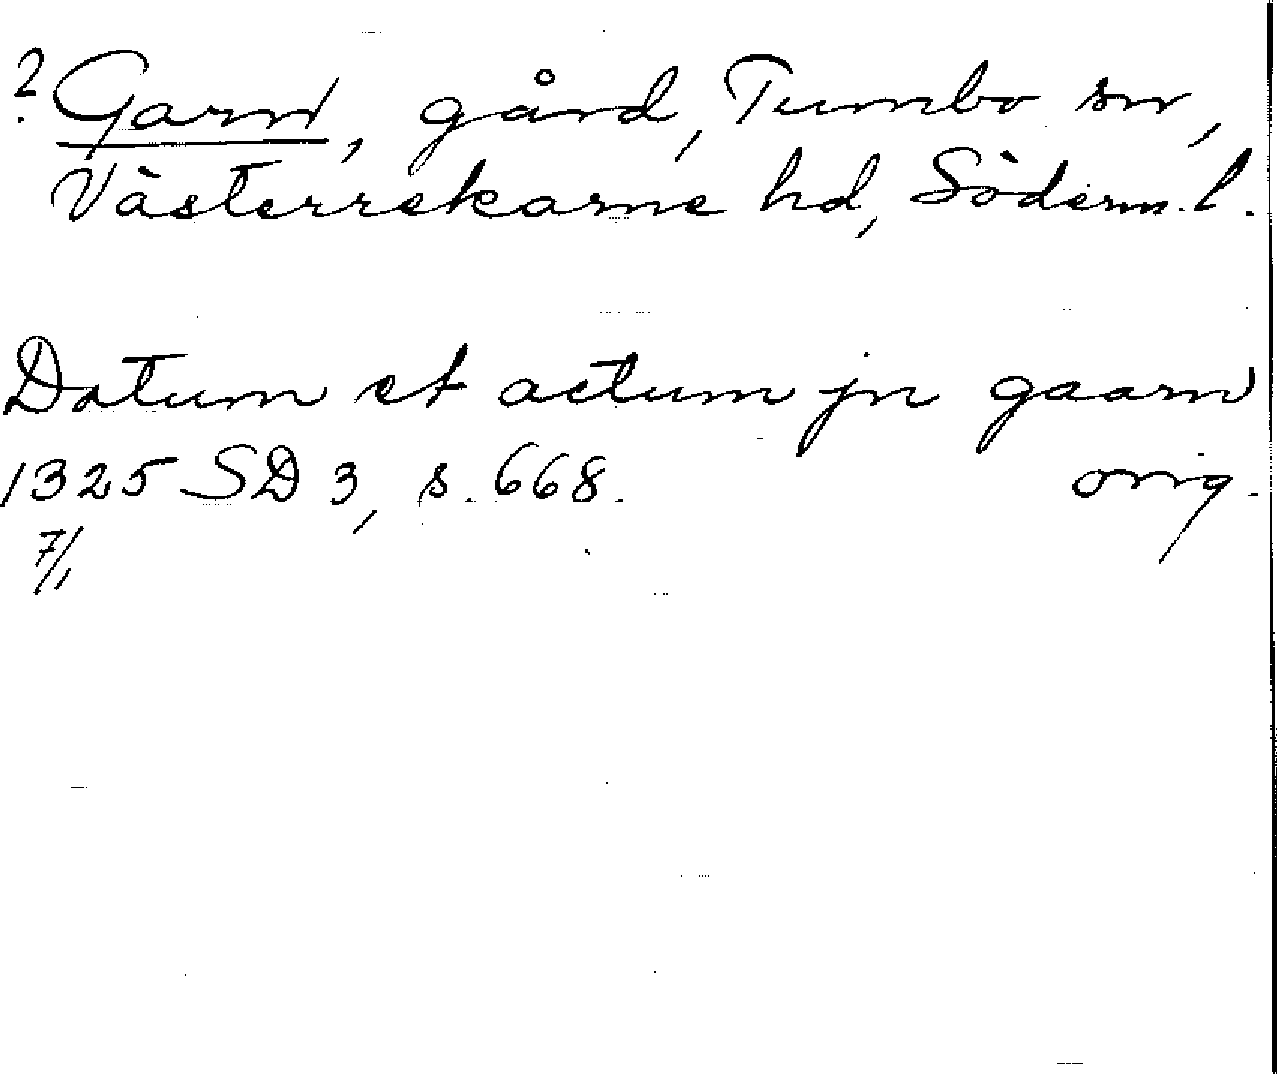 ? Garn, gård, Tumbo sn,
Västerrekarne hd, Söderm. l.
Datum et actum jn gaarn
1325 SD 3, s. 668. orig.
7/1